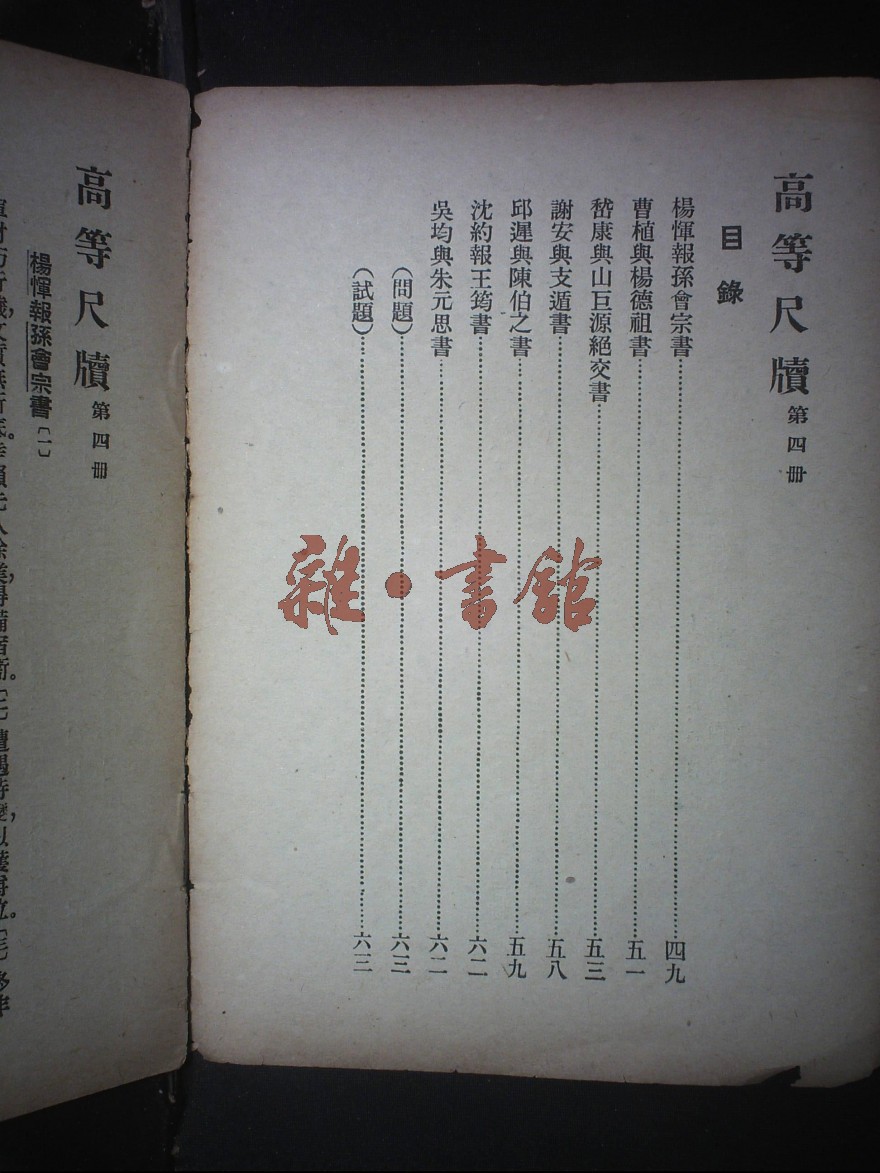 高等尺牘 第四冊
目錄
楊惲報孫會宗書 四九
曹植與楊德祖書 五一
嵇康與山巨源絕交書 五三
謝安與支遁書 五八
邱遲與陳伯之書 五九
沈約報王筠書 六二
吳均與朱元思書 六二
（問題） 六三
（試題） 六三
雜·書館
高等尺牘 第四冊
楊惲報孫會宗書〔一〕